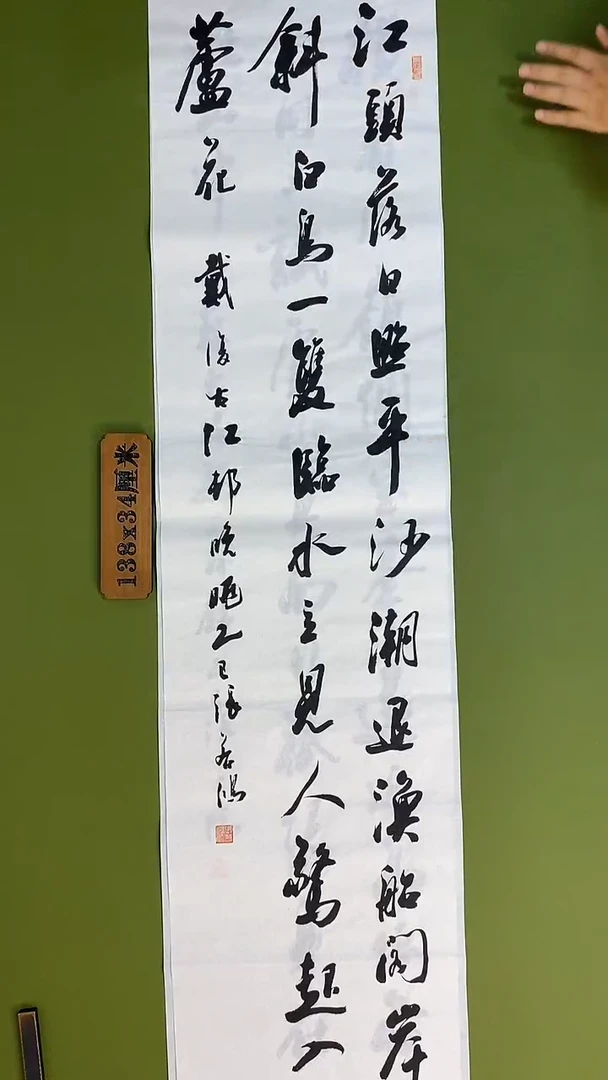 江頭落日照平沙潮退漁船閣岸
斜白鳥一雙臨水立見人驚起入
蘆花
戴復古江邨晚眺乙巳張
138x34厘米